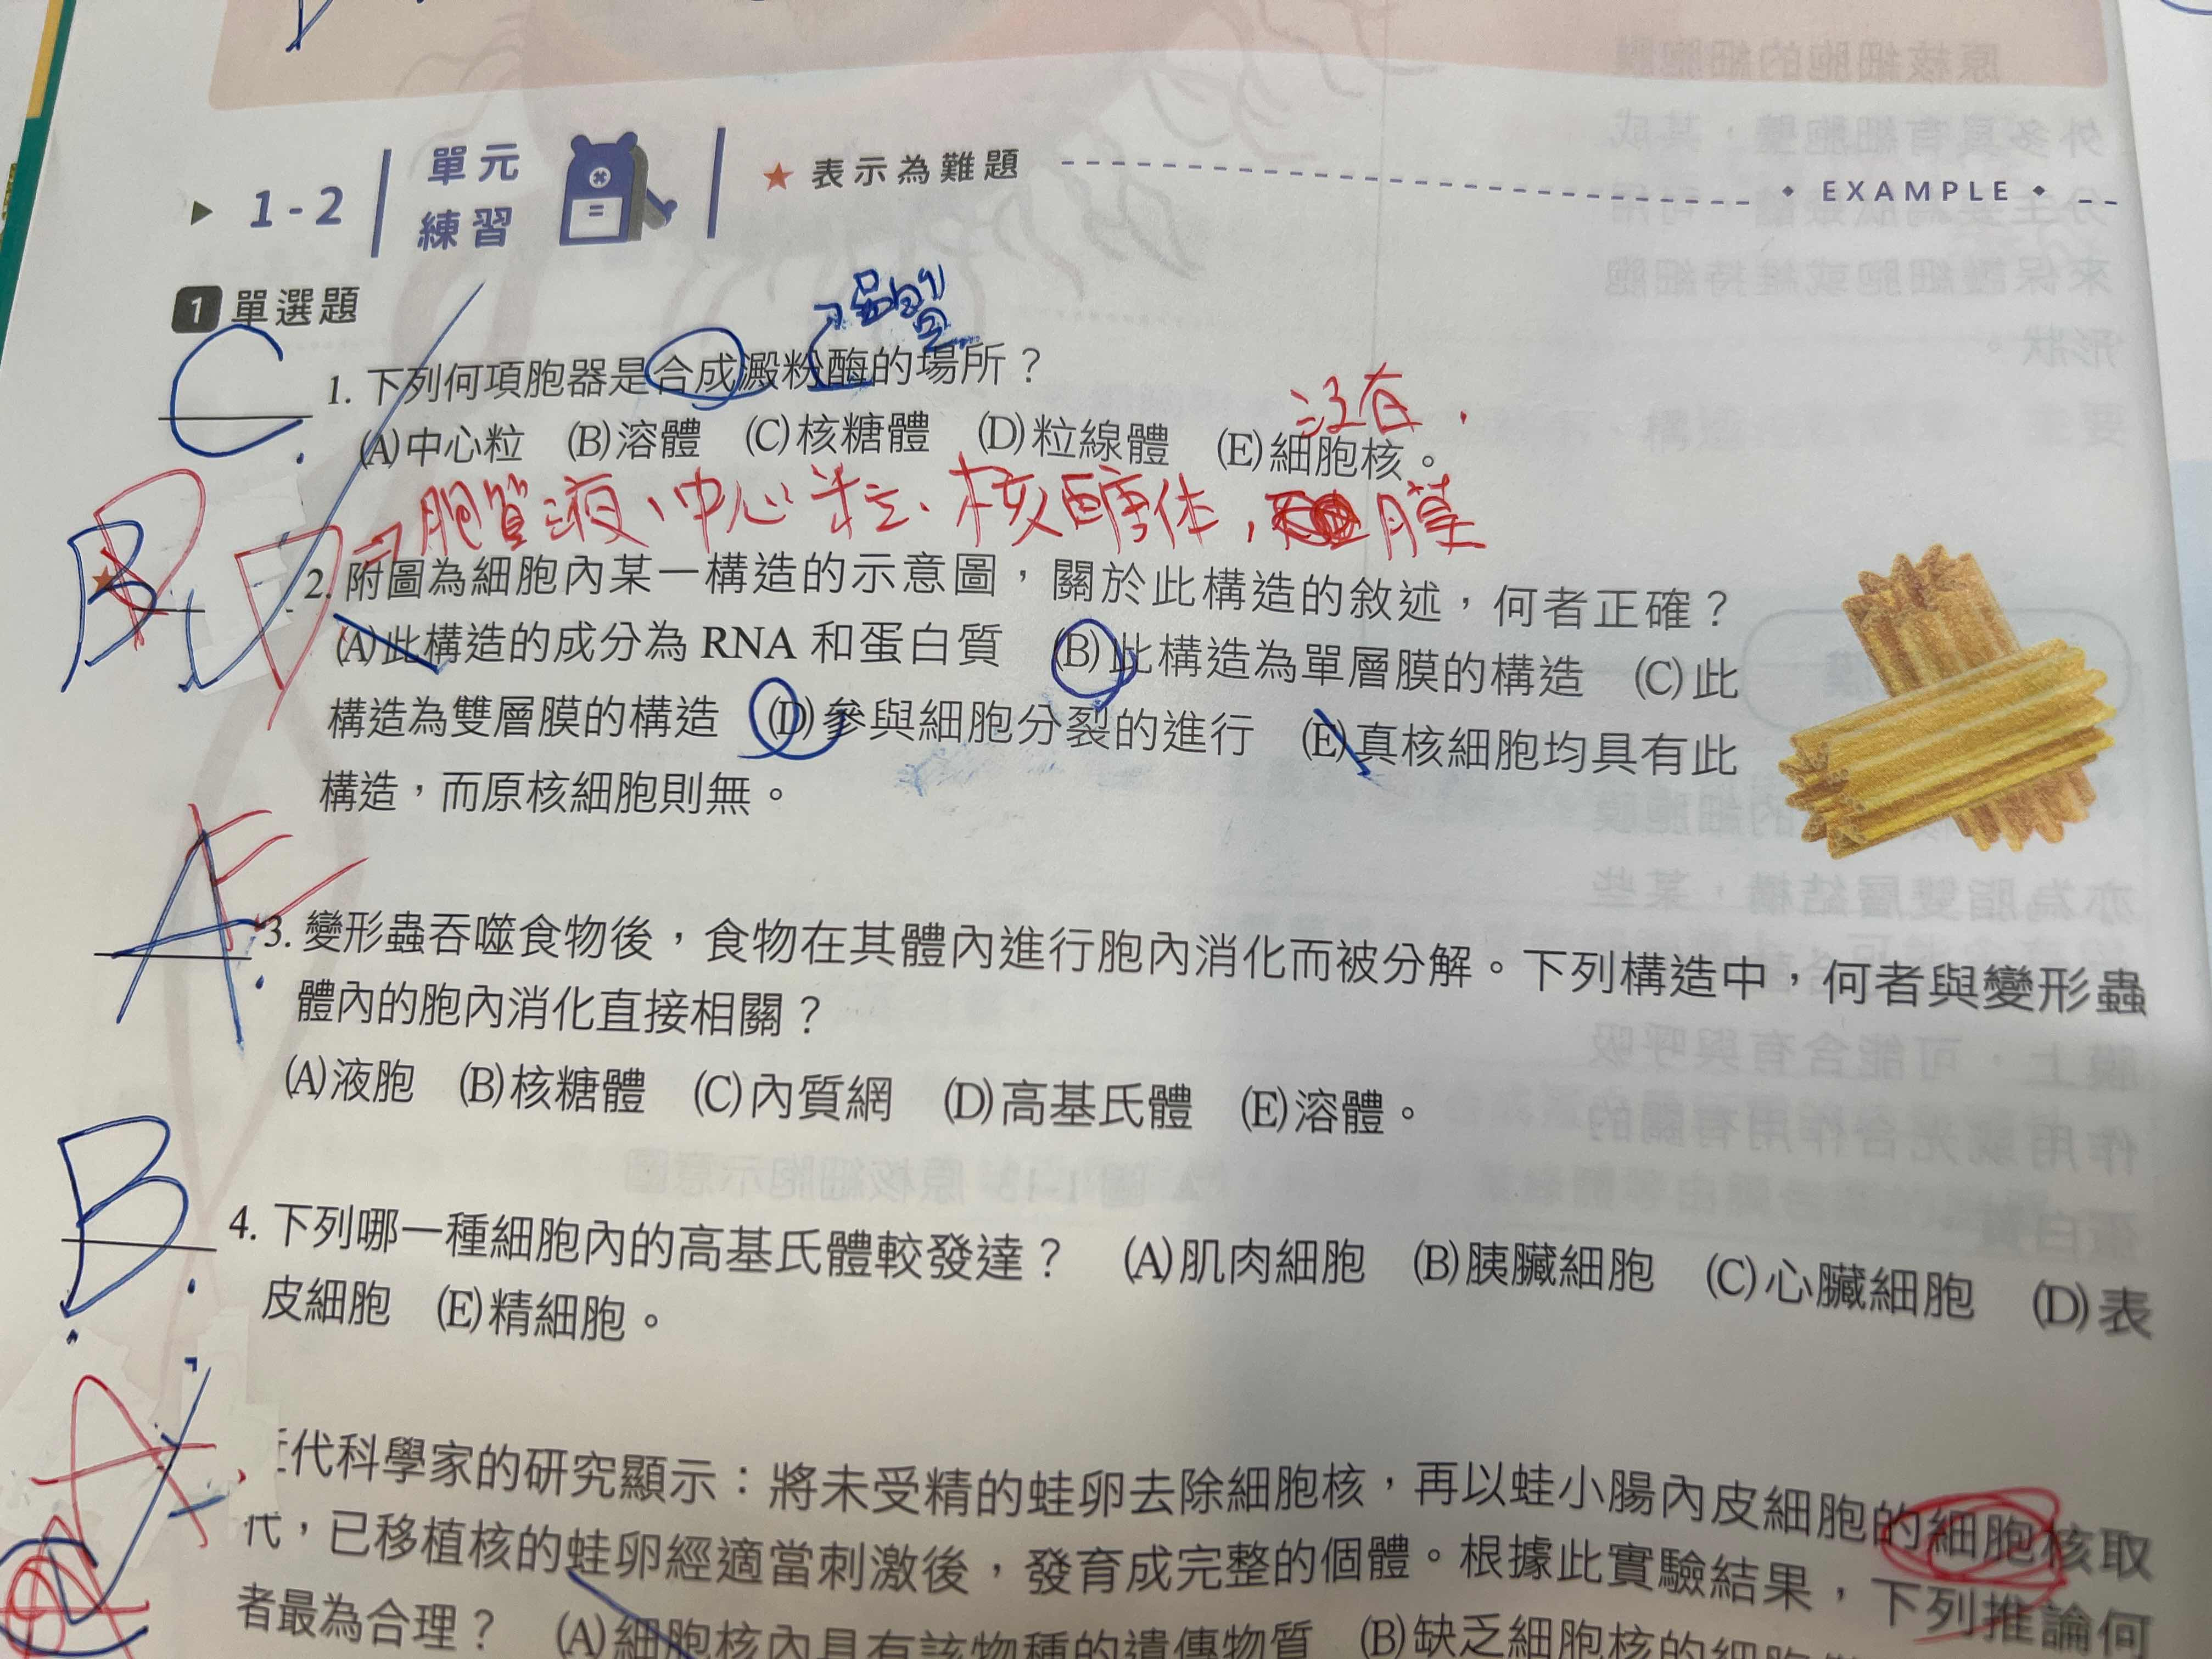 1-2 單元練習 ★表示為難題 EXAMPLE
1 單選題
→蛋白質
C. 1. 下列何項胞器是合成澱粉酶的場所？
(A)中心粒 (B)溶體 (C)核糖體 (D)粒線體 (E)細胞核。
沒有.
→胞質液、中心粒、核醣体,
膜
B D 2. 附圖為細胞內某一構造的示意圖，關於此構造的敘述，何者正確？
(A)此構造的成分為 RNA 和蛋白質 (B)此構造為單層膜的構造 (C)此
構造為雙層膜的構造 (D)參與細胞分裂的進行 (E)真核細胞均具有此
構造，而原核細胞則無。
A E 3. 變形蟲吞噬食物後，食物在其體內進行胞內消化而被分解。下列構造中，何者與變形蟲
體內的胞內消化直接相關？
(A)液胞 (B)核糖體 (C)內質網 (D)高基氏體 (E)溶體。
B. 4. 下列哪一種細胞內的高基氏體較發達？ (A)肌肉細胞 (B)胰臟細胞 (C)心臟細胞 (D)表
皮細胞 (E)精細胞。
A 代科學家的研究顯示：將未受精的蛙卵去除細胞核，再以蛙小腸內皮細胞的細胞核取
代，已移植核的蛙卵經適當刺激後，發育成完整的個體。根據此實驗結果，下列推論何
者最為合理？ (A)細胞核內具有該物種的遺傳物質 (B)缺乏細胞核的細胞